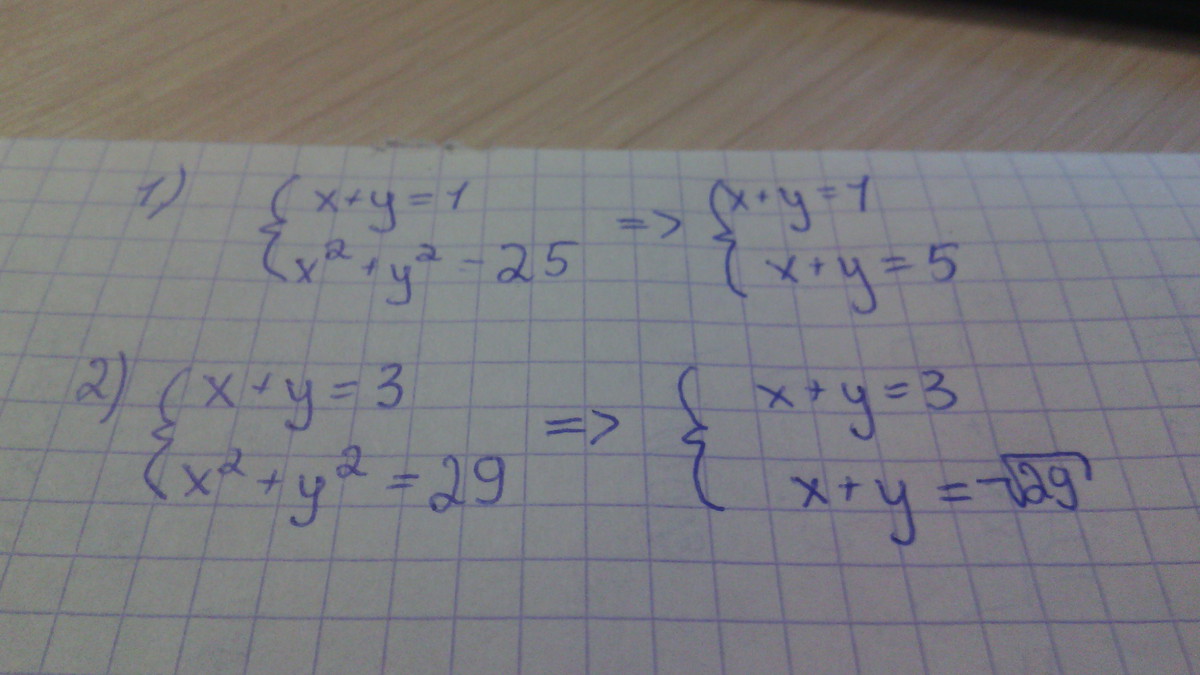 1) { x+y=1 x²+y²=25 => { x+y=1 x+y=5
2) { x+y=3 x²+y²=29 => { x+y=3 x+y=√29